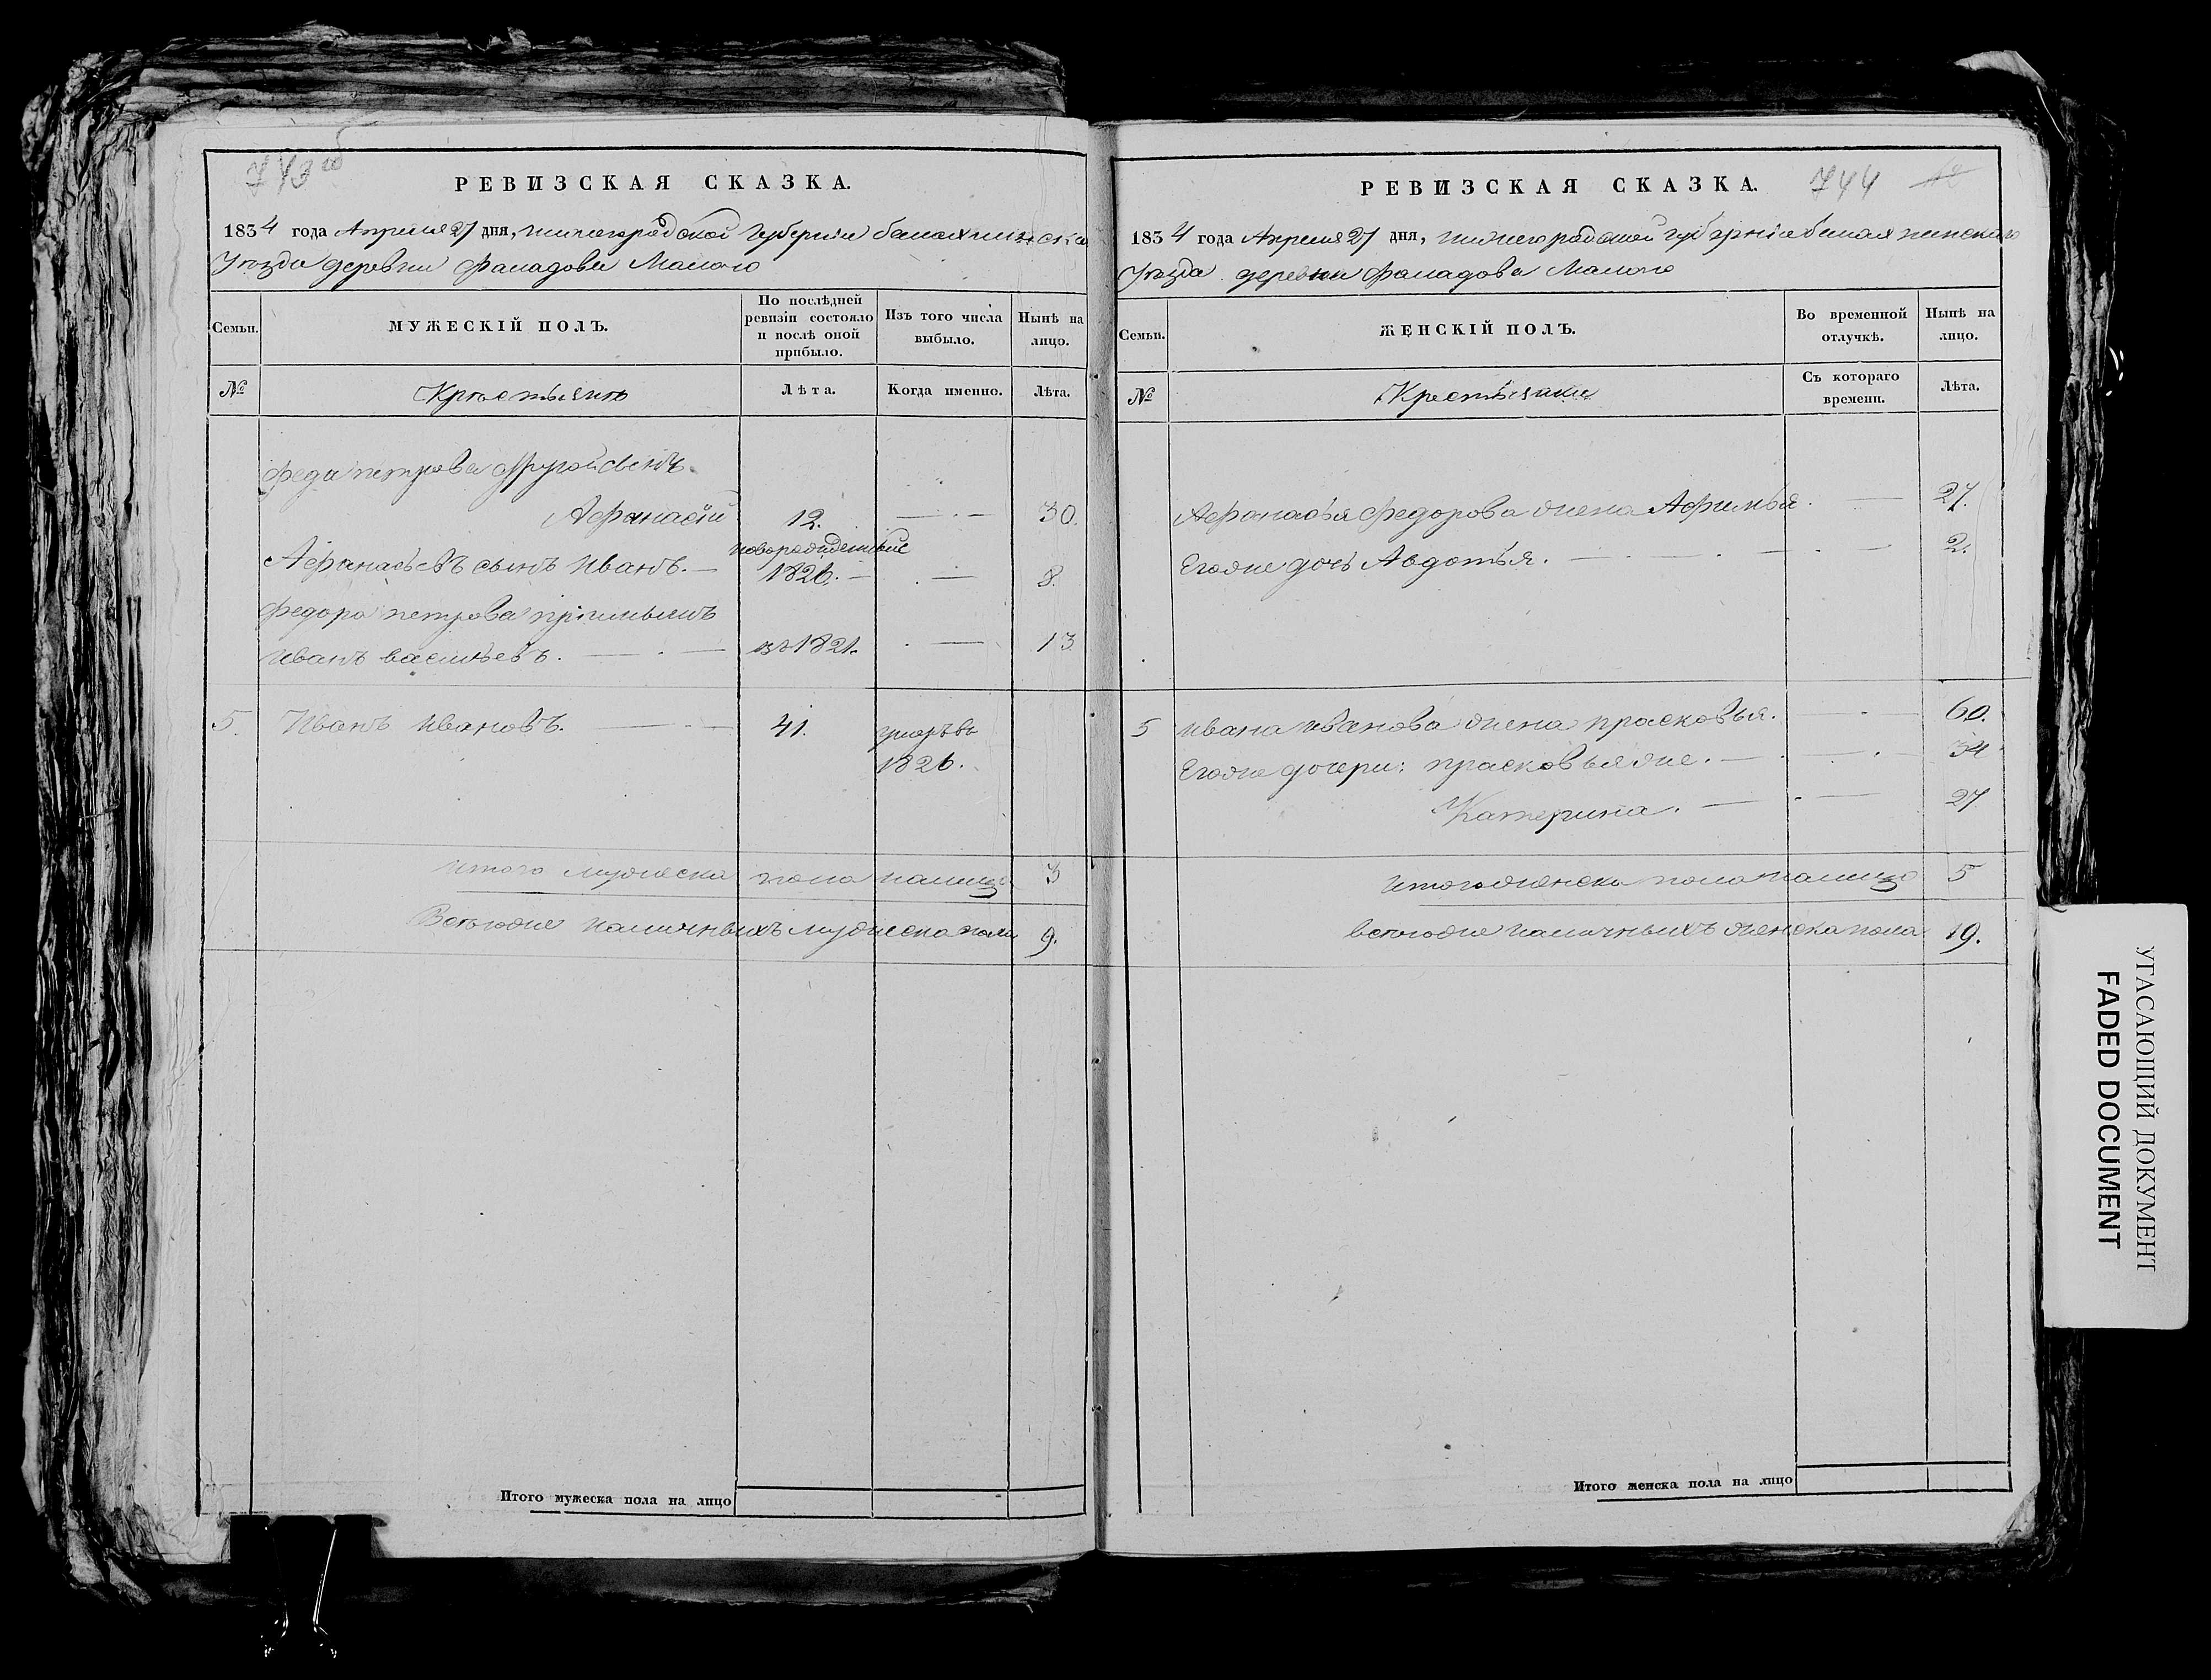 743 об
РЕВИЗСКАЯ СКАЗКА.
1834 года Апреля 27 дня, нижегородской губернии балахнинска
Уезда деревни Фаладова Малого
Семьи.
МУЖЕСКІЙ ПОЛЪ.
По послѣдней ревизіи состояло и послѣ оной прибыло.
Изъ того числа выбыло.
Нынѣ на лицо.
№
Крѣстьянъ
Лѣта.
Когда именно.
Лѣта.
Феда петрова другой сынъ
Афанасій 12. 30.
новорожденные
Афанасьевъ сынъ Иванъ. 1826. 8.
Федора петрова пріимышъ
Иванъ васильевъ. въ 1821. 13
5. Иванъ Ивановъ. 41. умеръ въ
1826.
итого мужеска пола налицо 3
Всегоже наличныхъ мужеска пола 9.
744 12
РЕВИЗСКАЯ СКАЗКА.
1834 года Апреля 27 дня, нижегородской губерніи балахнинскаго
Уезда деревни Фаладова Малого
Семьи.
ЖЕНСКІЙ ПОЛЪ.
Во временной отлучкѣ.
Нынѣ на лицо.
№
Крестьянки
Съ котораго времени.
Лѣта.
Афонасья Федорова жена Афимья. 27.
Егоже дочь Авдотья. 2.
5 Ивана Иванова жена прасковья. 60.
Егоже дочери: прасковьяже. 34
Катерина. 27
Итогоженска пола налицо 5
всегоже наличныхъ женска пола 19.
Итого мужеска пола на лицо
Итого женска пола на лицо
УГАСАЮЩИЙ ДОКУМЕНТ
FADED DOCUMENT